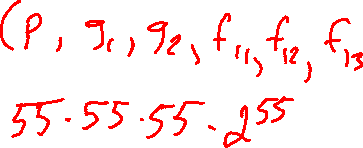 (p, g₁, g₂, f₁₁, f₁₂, f₁₃
55·55·55·2⁵⁵